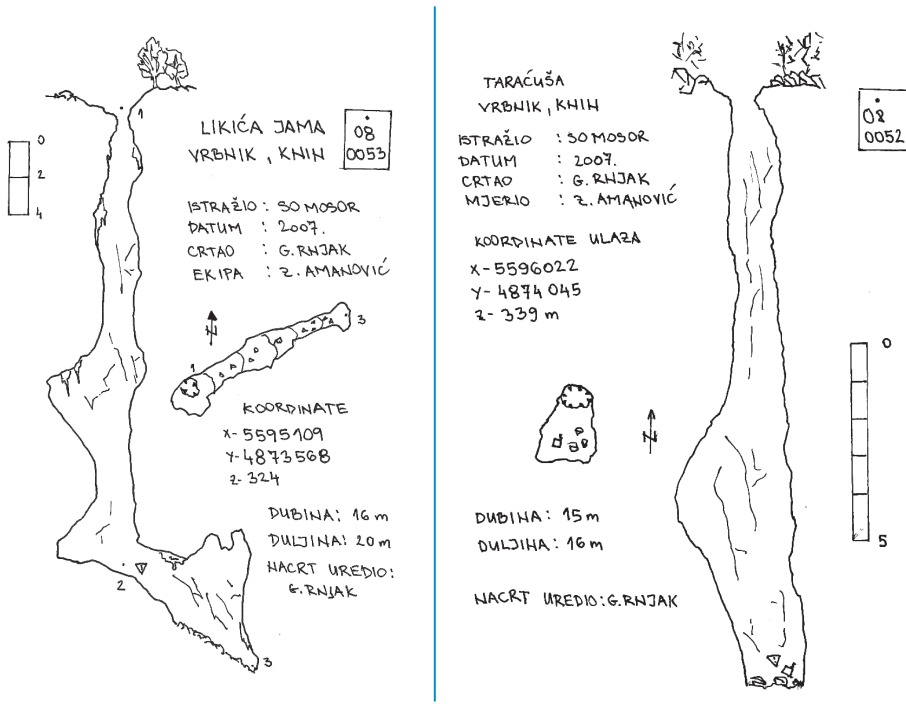 LIKIĆA JAMA
VRBNIK, KNIN
08
0053
0
2
4
ISTRAŽIO : SO MOSOR
DATUM : 2007.
CRTAO : G. RNJAK
EKIPA : Z. AMANOVIĆ
N
1
3
1
KOORDINATE
X-5595109
Y-4873568
Z-324
DUBINA: 16 m
DULJINA: 20 m
NACRT UREDIO:
G. RNJAK
2
3
TARAĆUŠA
VRBNIK, KNIN
08
0052
ISTRAŽIO : SO MOSOR
DATUM : 2007.
CRTAO : G. RNJAK
MJERIO : Z. AMANOVIĆ
KOORDINATE ULAZA
X-5596022
Y-4874045
Z-339 m
0
5
N
DUBINA: 15m
DULJINA: 16m
NACRT UREDIO: G. RNJAK